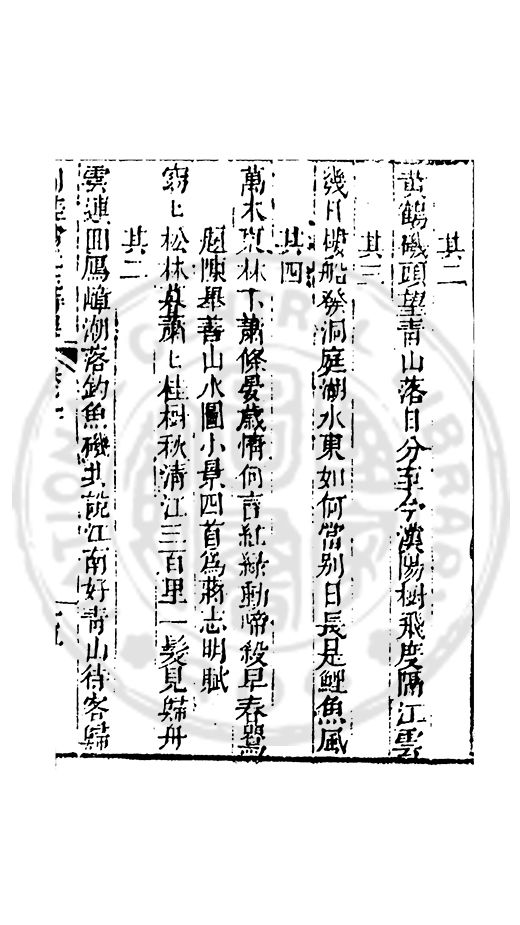 其二
黃鶴磯頭望青山落日分至今漢陽樹飛度隔江雲
其三
幾日樓船發洞庭湖水東如何當别日長是鯉魚風
其四
萬木寒林下蕭條晏歲情何言紅綠動啼殺早春鶯
題陳畢善山水圖小景四首爲蔣志明賦
翁上松林井蕭上桂樹秋清江三百里一髮見歸舟
其二
雲連回鴈峰潮落釣魚磯共說江南好青山待客歸